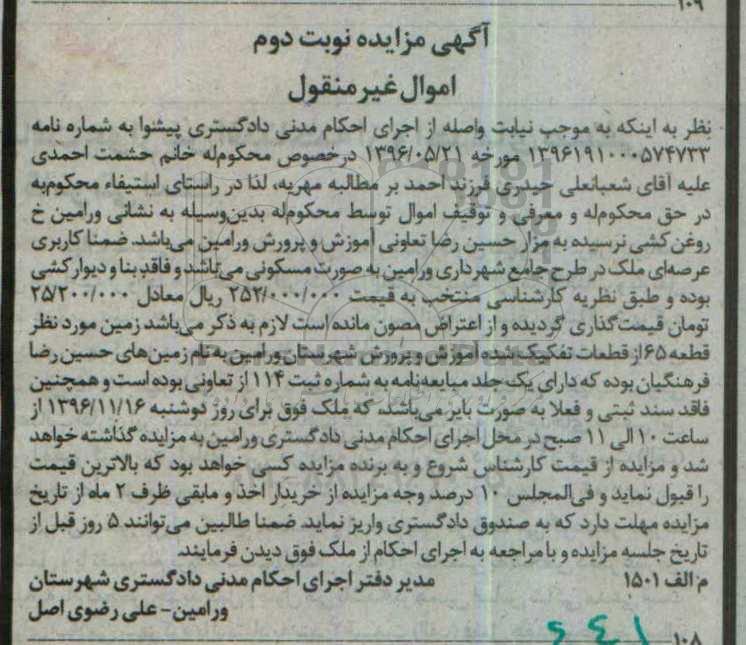 ۱۰۹
آگهی مزایده نوبت دوم
اموال غیرمنقول
نظر به اینکه به موجب نیابت واصله از اجرای احکام مدنی دادگستری پیشوا به شماره نامه
۱۳۹۶۱۹۱۰۰۰۵۷۴۷۳۳ مورخه ۱۳۹۶/۰۵/۲۱ درخصوص محکوم‌له خانم حشمت احمدی
علیه آقای شعبانعلی حیدری فرزند احمد بر مطالبه مهریه، لذا در راستای استیفاء محکوم‌به
در حق محکوم‌له و معرفی و توقیف اموال توسط محکوم‌له بدین‌وسیله به نشانی ورامین خ
روغن کشی نرسیده به مزار حسین رضا تعاونی آموزش و پرورش ورامین می‌باشد. ضمنا کاربری
عرصه‌ای ملک در طرح جامع شهرداری ورامین به صورت مسکونی می‌باشد و فاقد بنا و دیوارکشی
بوده و طبق نظریه کارشناسی منتخب به قیمت ۲۵۲/۰۰۰/۰۰۰ ریال معادل ۲۵/۲۰۰/۰۰۰
تومان قیمت‌گذاری گردیده و از اعتراض مصون مانده است لازم به ذکر می‌باشد زمین مورد نظر
قطعه ۶۵ از قطعات تفکیک شده آموزش و پرورش شهرستان ورامین به نام زمین‌های حسین رضا
فرهنگیان بوده که دارای یک جلد مبایعه‌نامه به شماره ثبت ۱۱۴ از تعاونی بوده است و همچنین
فاقد سند ثبتی و فعلا به صورت بایر می‌باشد، که ملک فوق برای روز دوشنبه ۱۳۹۶/۱۱/۱۶ از
ساعت ۱۰ الی ۱۱ صبح در محل اجرای احکام مدنی دادگستری ورامین به مزایده گذاشته خواهد
شد و مزایده از قیمت کارشناس شروع و به برنده مزایده کسی خواهد بود که بالاترین قیمت
را قبول نماید و فی‌المجلس ۱۰ درصد وجه مزایده از خریدار اخذ و مابقی ظرف ۲ ماه از تاریخ
مزایده مهلت دارد که به صندوق دادگستری واریز نماید. ضمنا طالبین می‌توانند ۵ روز قبل از
تاریخ جلسه مزایده و با مراجعه به اجرای احکام از ملک فوق دیدن فرمایند.
م الف ۱۵۰۱ مدیر دفتر اجرای احکام مدنی دادگستری شهرستان
ورامین- علی رضوی اصل
۱۰۸